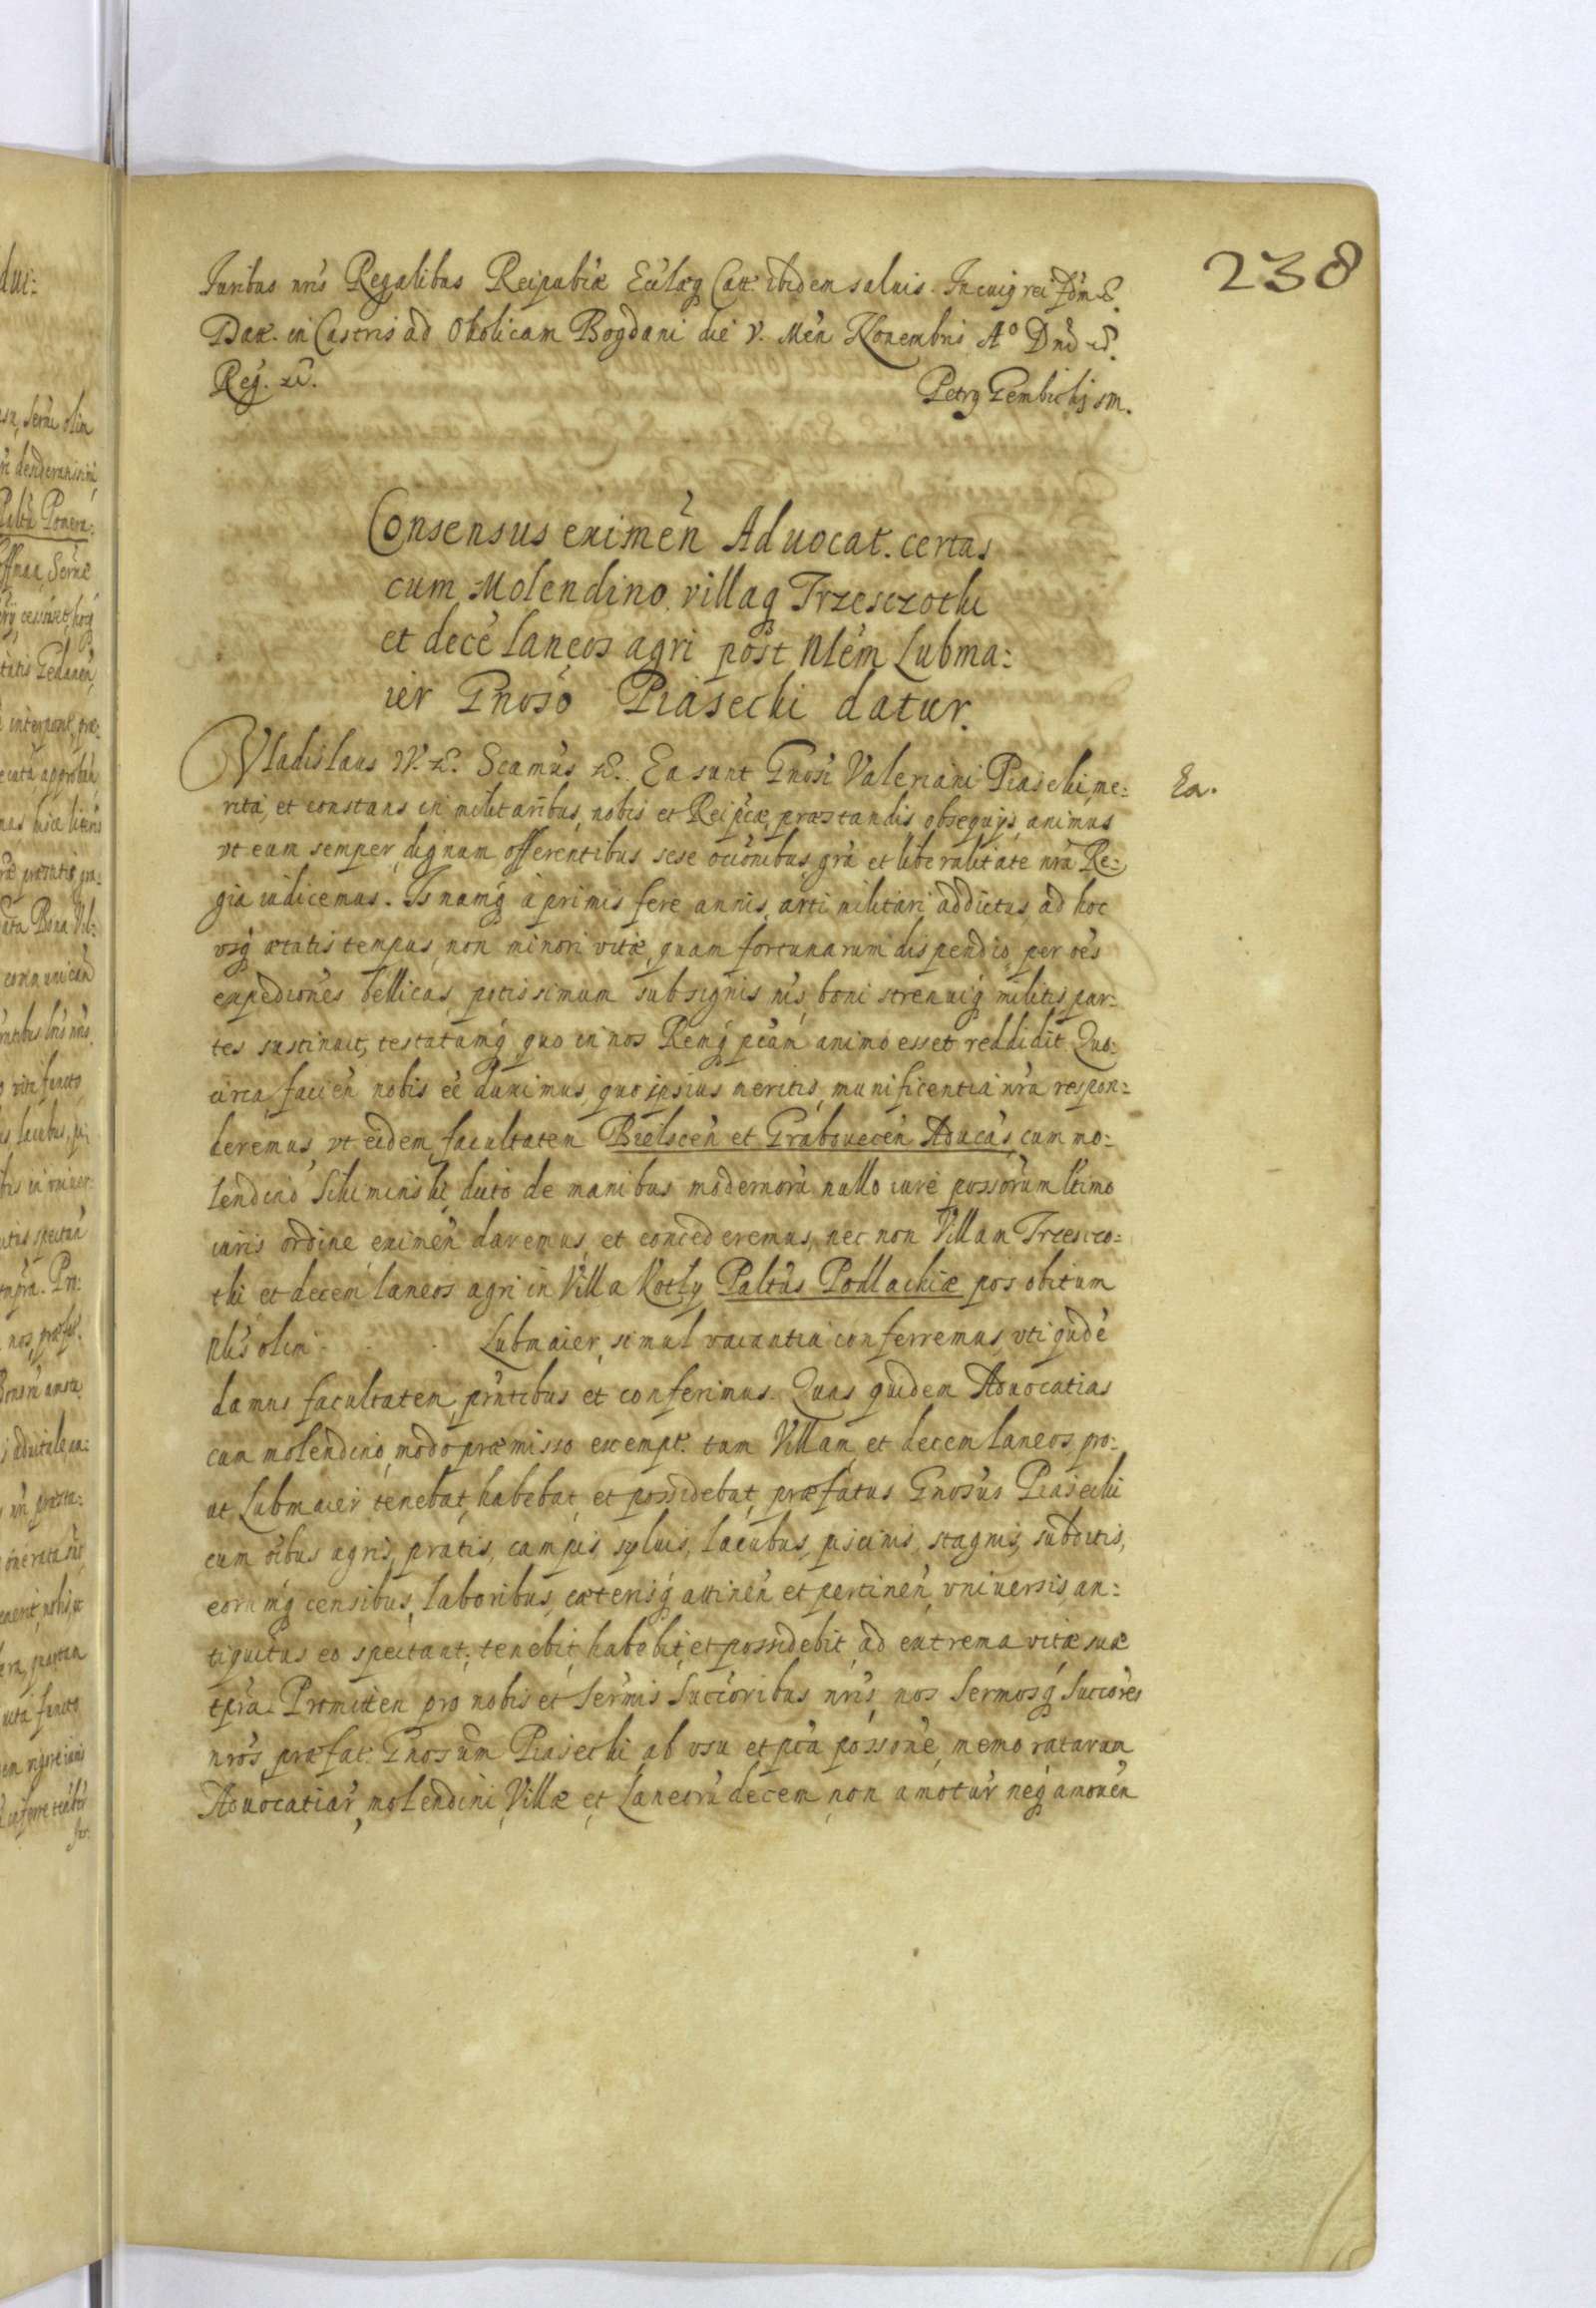 238
Juribus nris Regalibus Reipublicæ Ecclæq Catt. ibidem saluis. In cuiq rei fidm &.
Datt. in Castris ad Okolicam Bogdani die V. Men Nouembris Aº Dni &.
Reg. &.
Petrq Gembickj sm.
Consensus eximen Aduocat. certas
cum Molendino, villaq Trzesczotki
et decē laneos agri post Nlem Lubma:
ier Gnoso Piasecki datur.
Vladislaus IV. &. Scamus &. Ea sunt Gnosi Valeriani Piasecki, me:
Ea.
rita, et constans in militaribus, nobis et Reipcæ, præstandis obsequijs, animus
vt eum semper, dignum offerentibus sese occionibus, gra et liberalitate nra Re:
gia iudicemus. Is namq a primis fere annis, arti militari addictus, ad hoc
vsq ætatis tempus, non minori vitæ, quam fortunarum dispendio, per oes
expediones bellicas, potissimum sub signis nris, boni strenuiq militis, par:
tes sustinuit, testatamq quo in nos Remq pcam animo esset reddidit. Quo:
circa, facien nobis eē duximus, quo ipsius meritis, munificentia nra respon:
deremus, vt eidem, facultatem Bielscen et Grabouecen Aducas, cum mo:
lendino Sikiminski, dicto de manibus modernorū nullo iure possorum ltimo
iuris ordine, eximen daremus, et concederemus, nec non Villam Trzesczo:
tki et decem laneos agri in Villa Kotly Paltus Podlachiæ pos obitum
Nlis olim . . . Lubmaier, simul vacantia conferremus, vti qudē
damus facultatem, pntibus et conferimus. Quas quidem Aduocatias
cum molendino, modo præmisso exempt. tum Villam, et decem laneos, pro:
ut Lubmaier tenebat, habebat, et possidebat, præfatus Gnosus Piasecki
cum oibus agris, pratis, campis, syluis, lacubus, piscinis, stagnis, subditis,
eorumq censibus, laboribus, cæterisq attinen et pertinen, vniuersis, an:
tiquitus eo spectant, tenebit, habebit, et possidebit, ad extrema vitæ suæ
tpra. Promitten pro nobis et Sermis Succoribus nris, nos Sermosq Succores
nros, præfat. Gnosum Piasecki, ab vsu et pca possone, memoratarum
Aduocatiar, molendini, Villæ et Laneorū decem, non amotur neq amouen